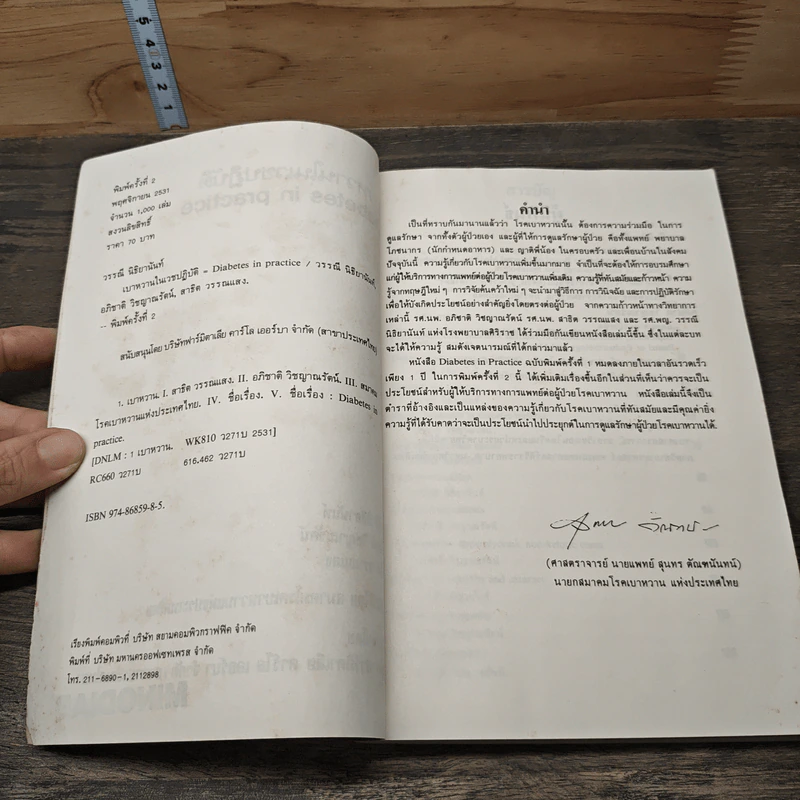 5 4 3 2 1
พิมพ์ครั้งที่ 2
พฤศจิกายน 2531
จำนวน 1,000 เล่ม
สงวนลิขสิทธิ์
ราคา 70 บาท
วรรณี นิธิยานันท์
เบาหวานในเวชปฏิบัติ = Diabetes in practice / วรรณี นิธิยานันท์,
อภิชาติ วิชญาณรัตน์, สาธิต วรรณแสง.
-- พิมพ์ครั้งที่ 2
สนับสนุนโดย บริษัทฟาร์มิตาเลีย คาร์โล เออร์บา จำกัด (สาขาประเทศไทย)
1. เบาหวาน. I. สาธิต วรรณแสง. II. อภิชาติ วิชญาณรัตน์. III. สมาคม
โรคเบาหวานแห่งประเทศไทย. IV. ชื่อเรื่อง. V. ชื่อเรื่อง : Diabetes in
practice.
[DNLM : 1 เบาหวาน. WK810 ว271บ 2531]
RC660 ว271บ 616.462 ว271บ
ISBN 974-86859-8-5.
เรียงพิมพ์คอมพิวที่ บริษัท สยามคอมพิวกราฟฟิค จำกัด
พิมพ์ที่ บริษัท มหานครออฟเซทเพรส จำกัด
โทร. 211-6890-1, 2112898
คำนำ
เป็นที่ทราบกันมานานแล้วว่า โรคเบาหวานนั้น ต้องการความร่วมมือ ในการ
ดูแลรักษา จากทั้งตัวผู้ป่วยเอง และผู้ที่ให้การดูแลรักษาผู้ป่วย คือทั้งแพทย์ พยาบาล
โภชนากร (นักกำหนดอาหาร) และ ญาติพี่น้อง ในครอบครัว และเพื่อนบ้านในสังคม
ปัจจุบันนี้ ความรู้เกี่ยวกับโรคเบาหวานเพิ่มขึ้นมากมาย จำเป็นที่จะต้องให้การอบรมศึกษา
แก่ผู้ให้บริการทางการแพทย์ต่อผู้ป่วยโรคเบาหวานเพิ่มเติม ความรู้ที่ทันสมัยและก้าวหน้า ความ
รู้จากทฤษฎีใหม่ ๆ การวิจัยค้นคว้าใหม่ ๆ จะนำมาสู่วิธีการ การวินิจฉัย และการปฏิบัติรักษา
เพื่อให้บังเกิดประโยชน์อย่างสำคัญยิ่งโดยตรงต่อผู้ป่วย จากความก้าวหน้าทางวิทยาการ
เหล่านี้ รศ.นพ. อภิชาติ วิชญาณรัตน์ รศ.นพ. สาธิต วรรณแสง และ รศ.พญ. วรรณี
นิธิยานันท์ แห่งโรงพยาบาลศิริราช ได้ร่วมมือกันเขียนหนังสือเล่มนี้ขึ้น ซึ่งในแต่ละบท
จะได้ให้ความรู้ สมดังเจตนารมณ์ที่ได้กล่าวมาแล้ว
หนังสือ Diabetes in Practice ฉบับพิมพ์ครั้งที่ 1 หมดลงภายในเวลาอันรวดเร็ว
เพียง 1 ปี ในการพิมพ์ครั้งที่ 2 นี้ ได้เพิ่มเติมเรื่องขึ้นอีกในส่วนที่เห็นว่าควรจะเป็น
ประโยชน์สำหรับผู้ให้บริการทางการแพทย์ต่อผู้ป่วยโรคเบาหวาน หนังสือเล่มนี้จึงเป็น
ตำราที่อ้างอิงและเป็นแหล่งของความรู้เกี่ยวกับโรคเบาหวานที่ทันสมัยและมีคุณค่ายิ่ง
ความรู้ที่ได้รับคาดว่าจะเป็นประโยชน์นำไปประยุกต์ในการดูแลรักษาผู้ป่วยโรคเบาหวานได้.
(ศาสตราจารย์ นายแพทย์ สุนทร ตัณฑนันทน์)
นายกสมาคมโรคเบาหวาน แห่งประเทศไทย